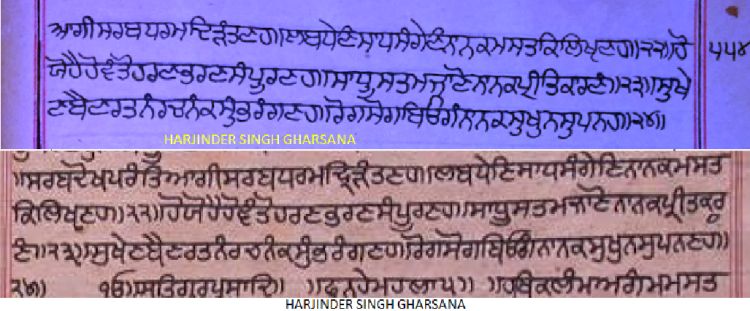 ਆਗੀਸਰਬਧਰਮਦ੍ਰਿੜੰਤਣਹ॥ਲਬਧੇਣਿਸਾਧਸੰਗੇਣਿਨਾਨਕਮਸਤਕਿਲਿਖ੍ਯਣਹ॥੨੨॥ਹੋ ੫੫੪
ਯੋਹੈਹੋਵੰਤੋਹਰਣਭਰਣਸੰਪੂਰਣਹ॥ਸਾਧੂਸਤਮਜਾਣੋਨਾਨਕਪ੍ਰੀਤਿਕਰਣੰ॥੨੩॥ਸੁਖੇ
ਣਬੈਣਰਤਨੰਰਚਨੰਕਸੁੰਭਰੰਗਣਹ॥ਰੋਗਸੋਗਬਿਓਗੰਨਾਨਕਸੁਖੁਨਸੁਪਨਹ॥੨੪॥
HARJINDER SINGH GHARSANA
॥ਸਰਬਦੋਖਪਰੰਤਿਆਗੀਸਰਬਧਰਮਦ੍ਰਿੜੰਤਣਹ॥ਲਬਧੇਣਿਸਾਧਸੰਗੇਣਿਨਾਨਕਮਸਤ
ਕਿਲਿਖ੍ਯਣਹ॥੨੨॥ਹੋਯੋਹੈਹੋਵੰਤੋਹਰਣਭਰਣਸੰਪੂਰਣਹ॥ਸਾਧੂਸਤਮਜਾਣੋਨਾਨਕਪ੍ਰੀਤਕਰ
ਣੰ॥੨੩॥ਸੁਖੇਣਬੈਣਰਤਨੰਰਚਨੰਕਸੁੰਭਰੰਗਣਹ॥ਰੋਗਸੋਗਬਿਓਗੰਨਾਨਕਸੁਖੁਨਸੁਪਨਣਹ॥
੨੪॥ ੴਸਤਿਗੁਰਪ੍ਰਸਾਦਿ॥ ॥ਫੁਨਹੇਮਹਲਾ੫॥
HARJINDER SINGH GHARSANA